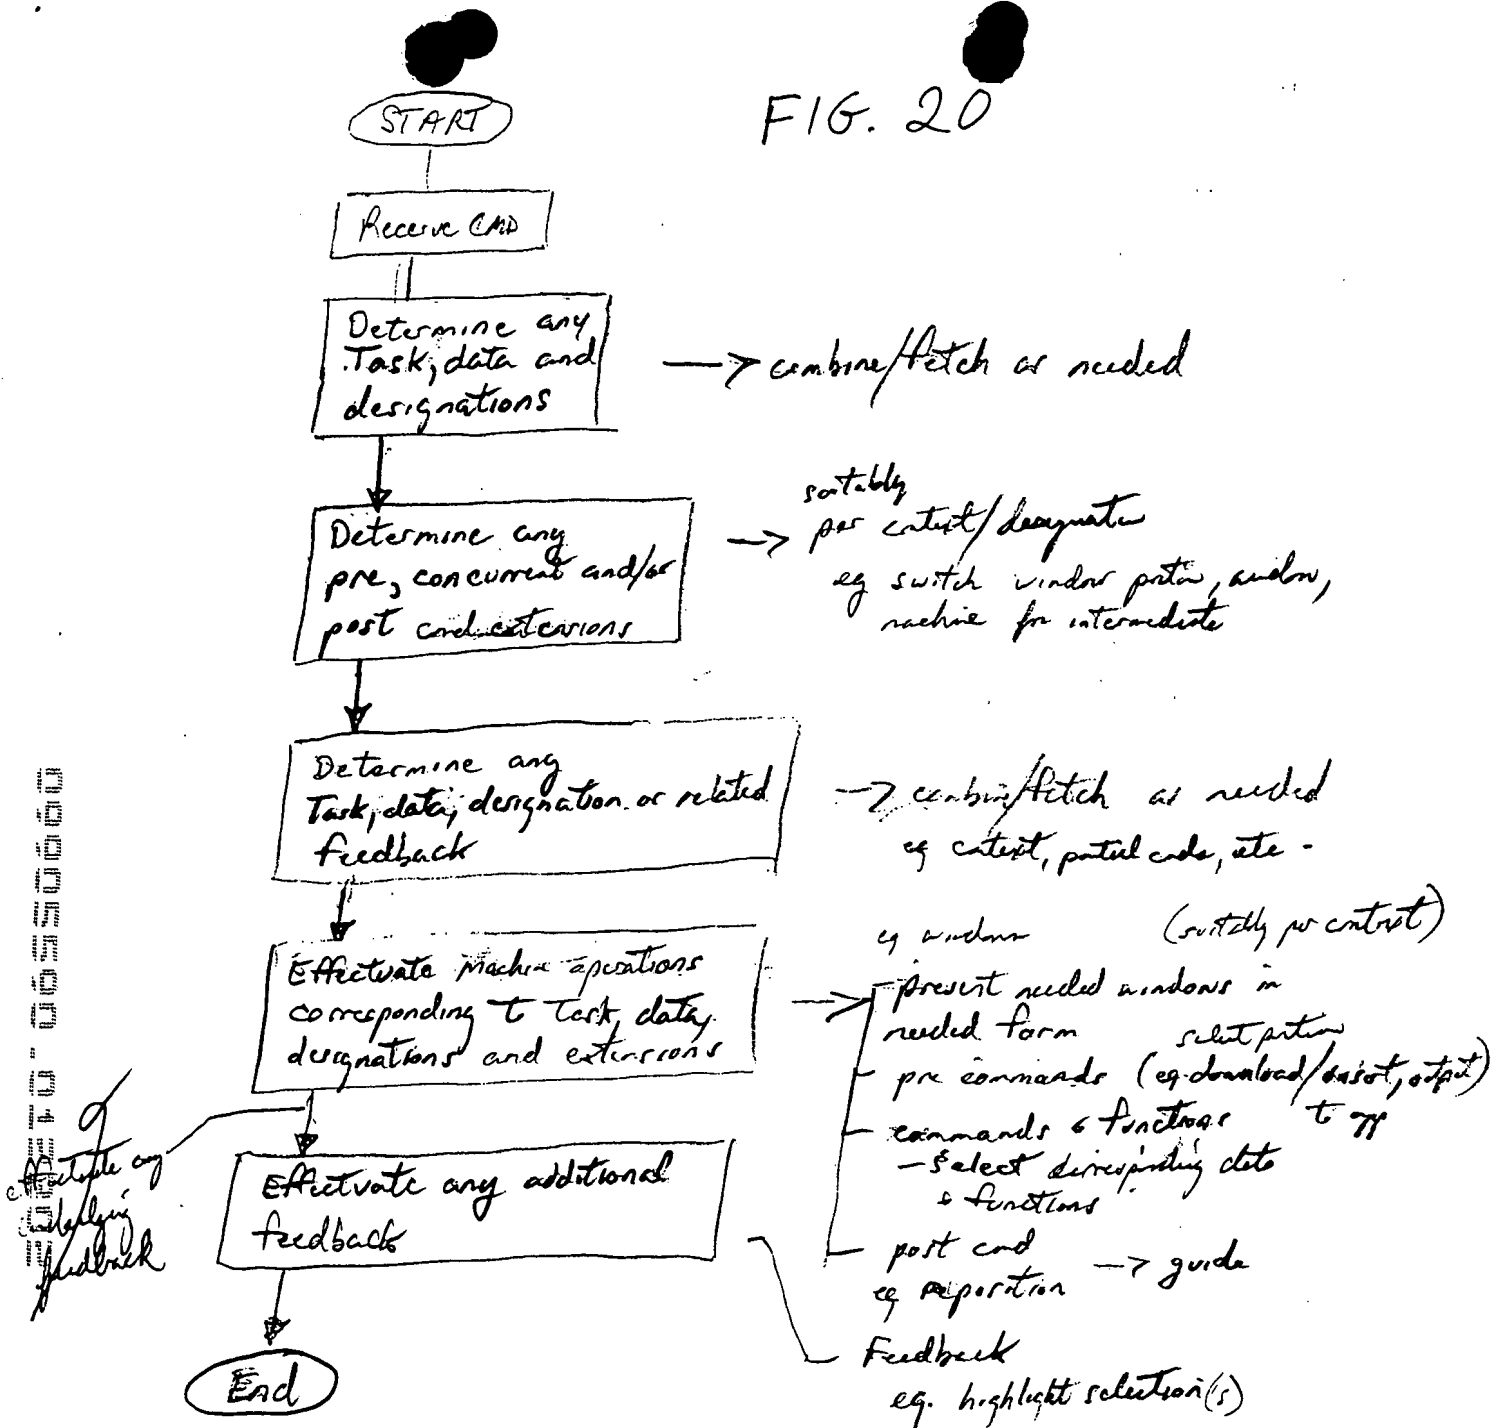 FIG. 20
START
Receive CMD
Determine any
Task, data and
designations
→ combine/fetch as needed
Determine any
pre, concurrent and/or
post cmd extensions
suitably
→ per context/designation
eg switch window portion, window,
machine for intermediate
Determine any
Task, data, designation or related
feedback
→ combine/fetch as needed
eg context, partial cmds, etc.
Effectuate machine operations
corresponding to Task, data,
designations and extensions
eg windows (suitably per context)
→ - present needed windows in
needed form
select portion
- pre commands (eg download/insert, output)
- commands & functions to app
- select corresponding data
& functions
- post cmd → guide
eg reposition
effectuate any
underlying
feedback
Effectuate any additional
feedback
Feedback
eg. highlight selection(s)
End